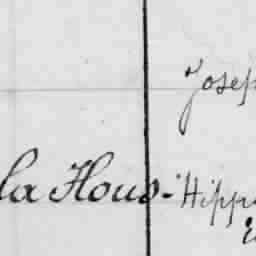 Josep
la Hous- Hipp